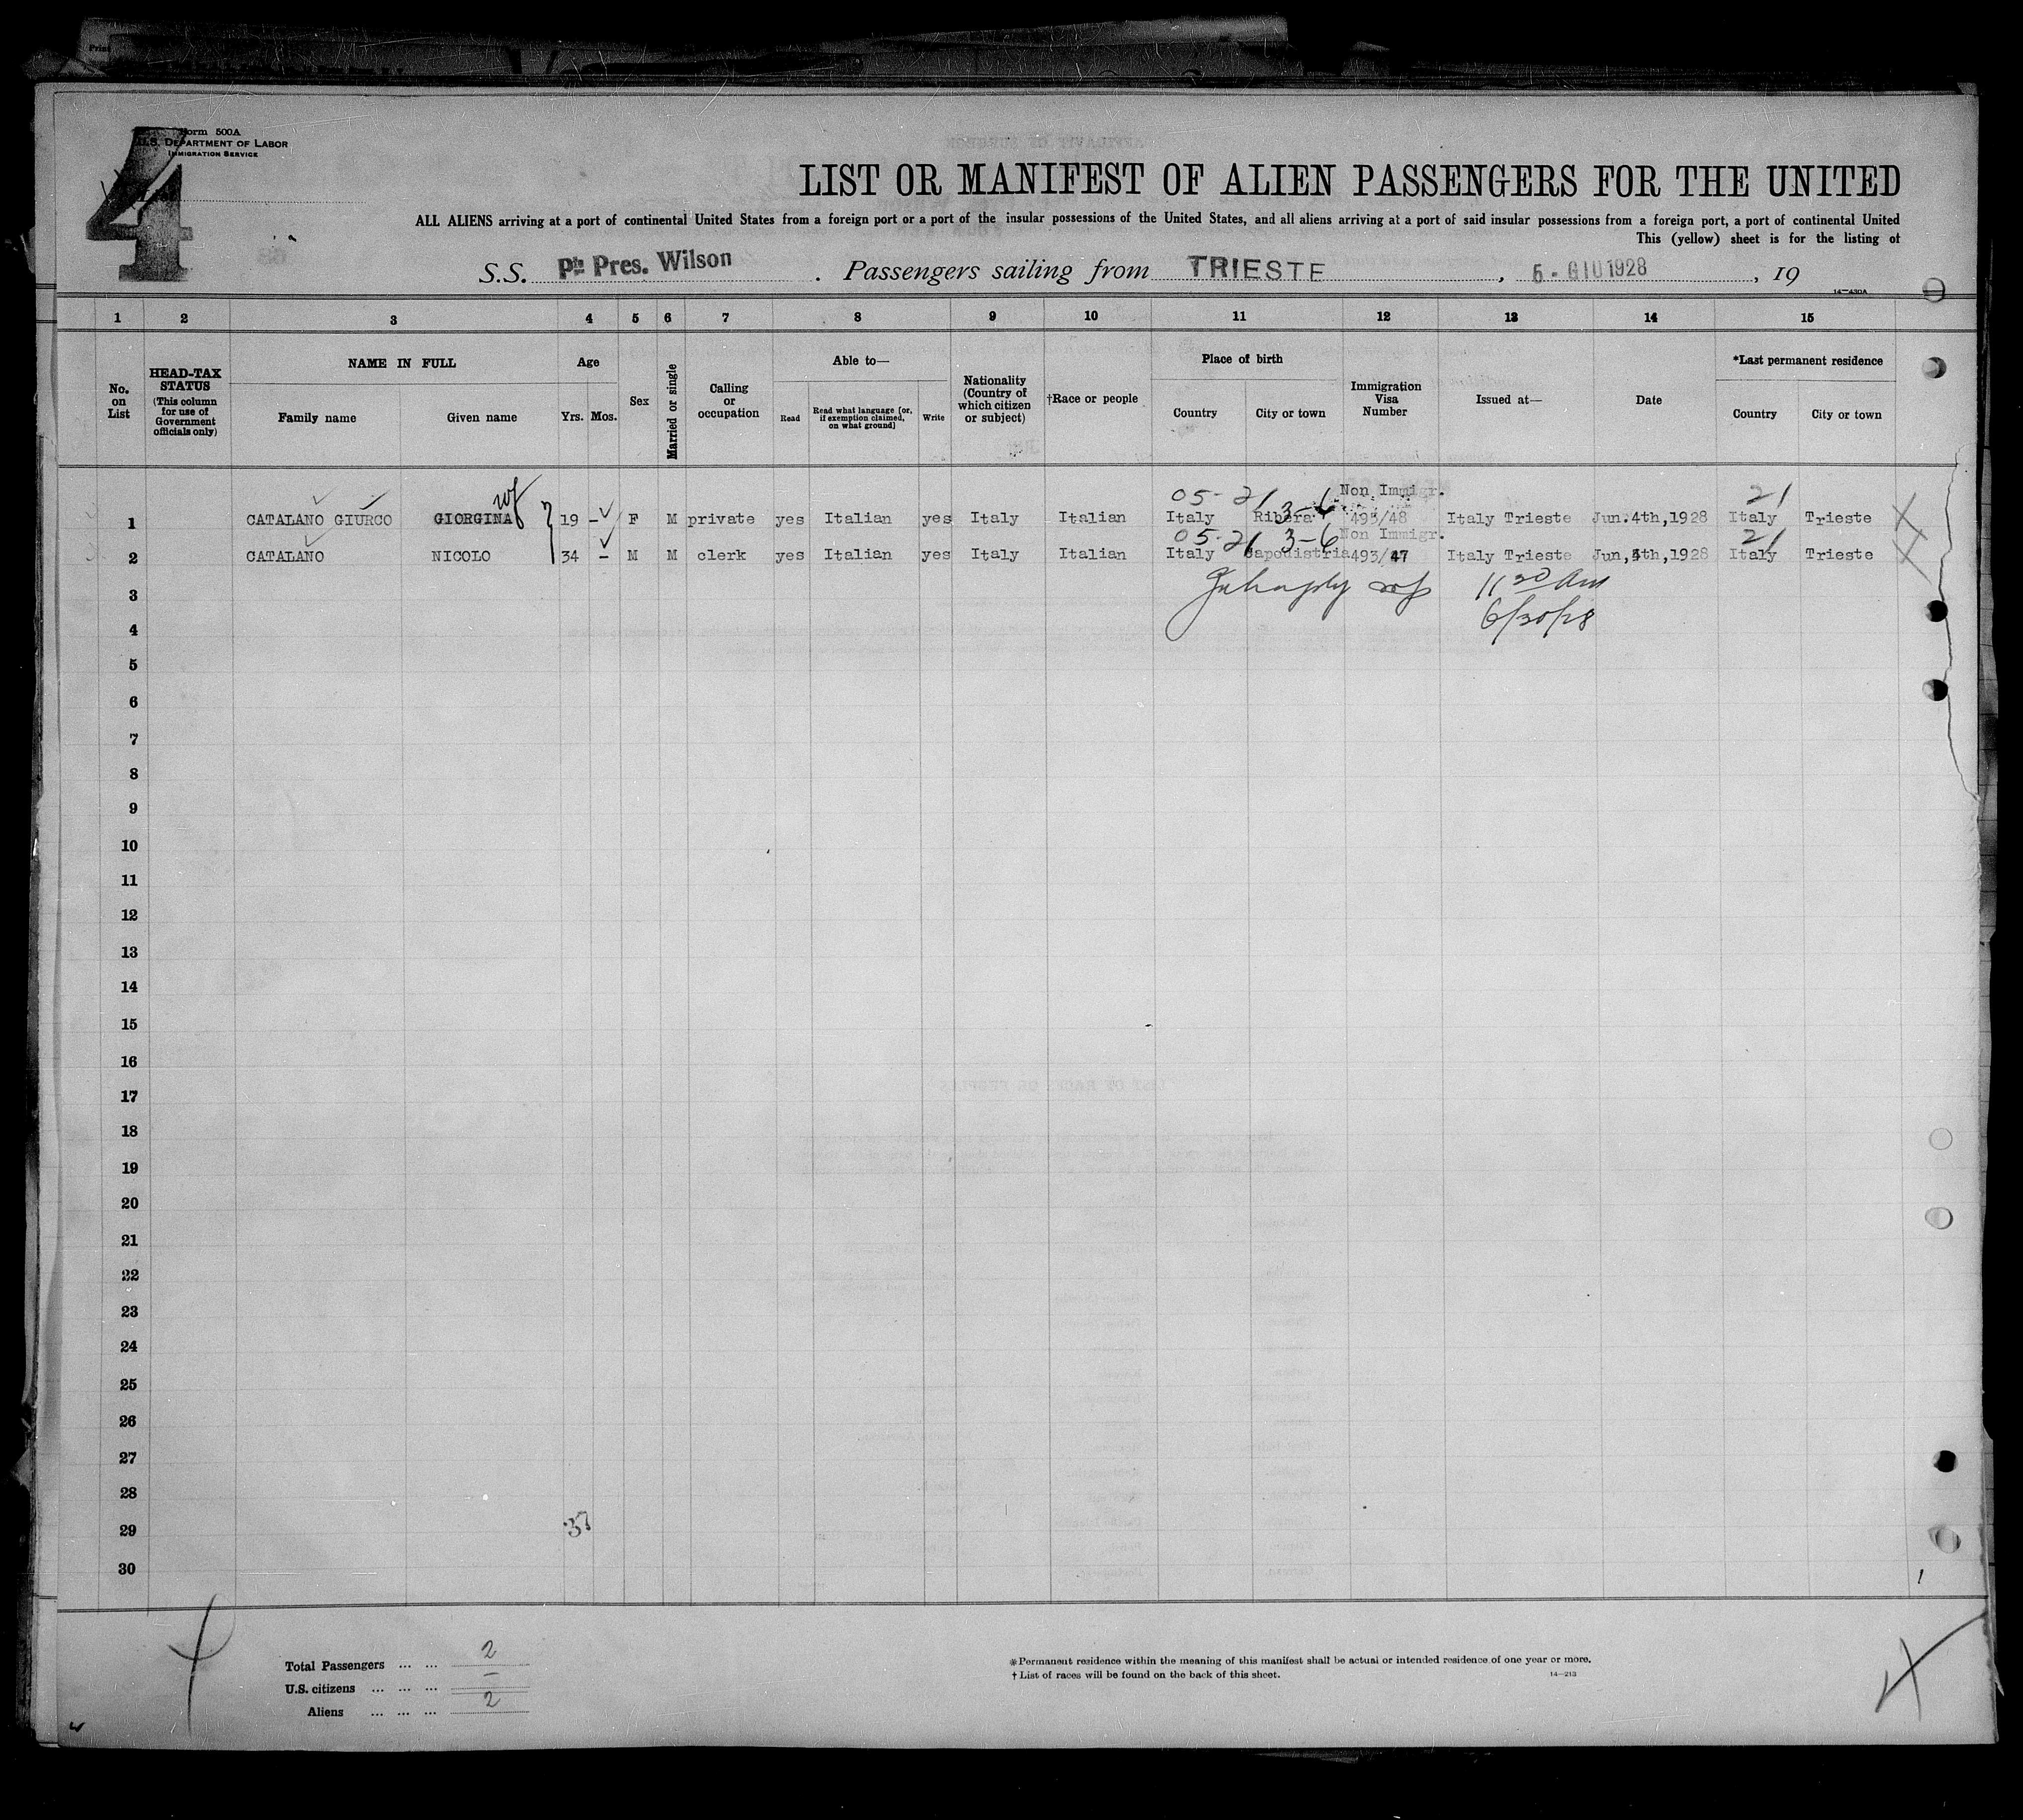 Form 500A
U.S. DEPARTMENT OF LABOR
IMMIGRATION SERVICE
4
LIST OR MANIFEST OF ALIEN PASSENGERS FOR THE UNITED
ALL ALIENS arriving at a port of continental United States from a foreign port or a port of the insular possessions of the United States, and all aliens arriving at a port of said insular possessions from a foreign port, a port of continental United
This (yellow) sheet is for the listing of
S.S. Pres. Wilson. Passengers sailing from TRIESTE, 5 - GIU 1928, 19
14—430A
1 2 3 4 5 6 7 8 9 10 11 12 13 14 15
No. on List
HEAD-TAX STATUS (This column for use of Government officials only)
NAME IN FULL
Family name Given name
Age
Yrs. Mos.
Sex
Married or single
Calling or occupation
Able to—
Read Read what language [or, if exemption claimed, on what ground] Write
Nationality (Country of which citizen or subject)
†Race or people
Place of birth
Country City or town
Immigration Visa Number
Issued at—
Date
*Last permanent residence
Country City or town
wf 05-21 3-6 Non Immigr. 21
1 CATALANO GIURCO GIORGINA 19 - F M private yes Italian yes Italy Italian Italy Ribera 493/48 Italy Trieste Jun.4th,1928 Italy Trieste
05-21 3-6 Non Immigr. 21
2 CATALANO NICOLO 34 - M M clerk yes Italian yes Italy Italian Italy Capodistria 493/47 Italy Trieste Jun,4th,1928 Italy Trieste
11 30 Am
3
6/30/28
4
5
6
7
8
9
10
11
12
13
14
15
16
17
18
19
20
21
22
23
24
25
26
27
28
29 37
30
Total Passengers ... ... 2
U.S. citizens ... ... ... —
Aliens ... ... ... 2
*Permanent residence within the meaning of this manifest shall be actual or intended residence of one year or more.
†List of races will be found on the back of this sheet.
14—213